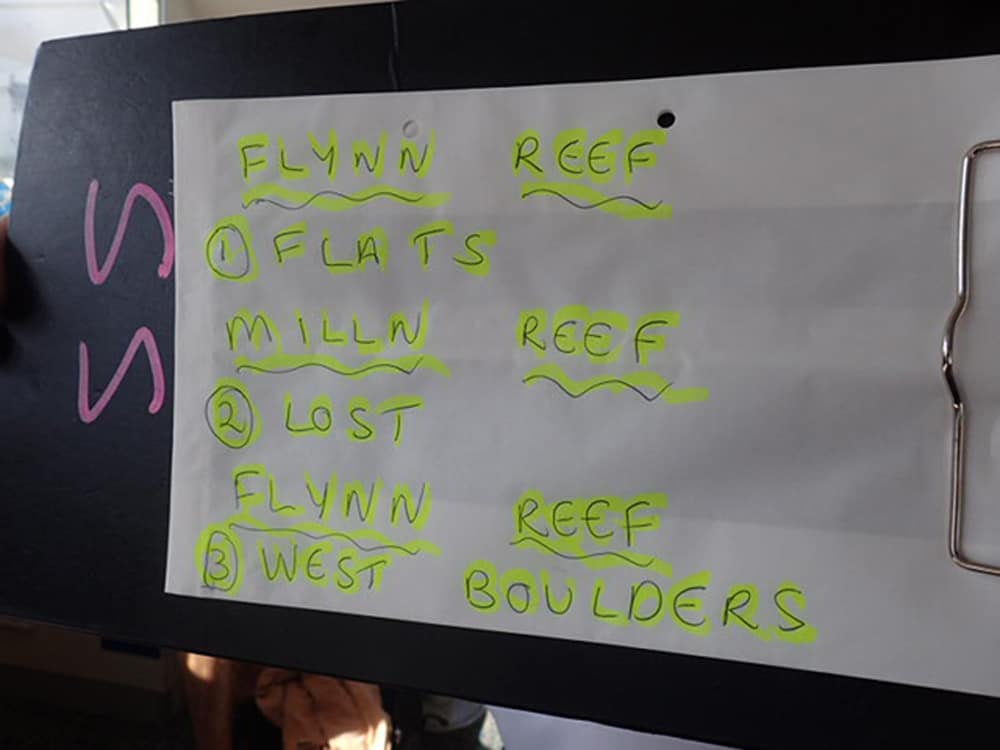 FLYNN REEF
① FLATS
MILLN REEF
② LOST
FLYNN REEF
③ WEST BOULDERS
SS